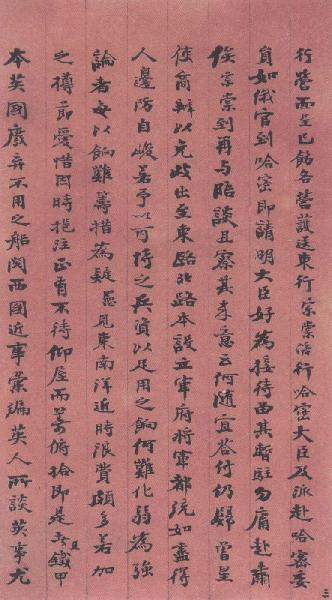 行營而呈已飭各營護送東行宗棠咨行哈密大臣及派赴哈密委
員如俄官到哈密即請明大臣好為接待留其暫駐勿庸赴肅
俟宗棠到再与晤談且察其來意云何隨宜答付仍歸曾星
使商辦以免歧出至東路北路本設立軍府將軍都統如盡得
人邊防自峻若予以可恃之兵資以足用之餉何難化弱為強
論者每以餉難籌措為疑愚見東南洋近時浪費頗多若加
之撙節愛惜因時挹注正有不待仰屋而籌俯拾即是矣且鐵甲
本英國廢弃不用之船閱西國近事彙編英人所談英事尤